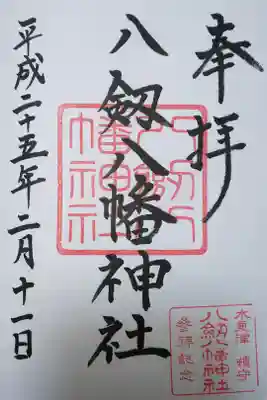 奉拝
八剱八幡神社
平成二十五年二月十一日
八剱八幡神社
木更津 鎮守
八剱八幡神社
参拝記念